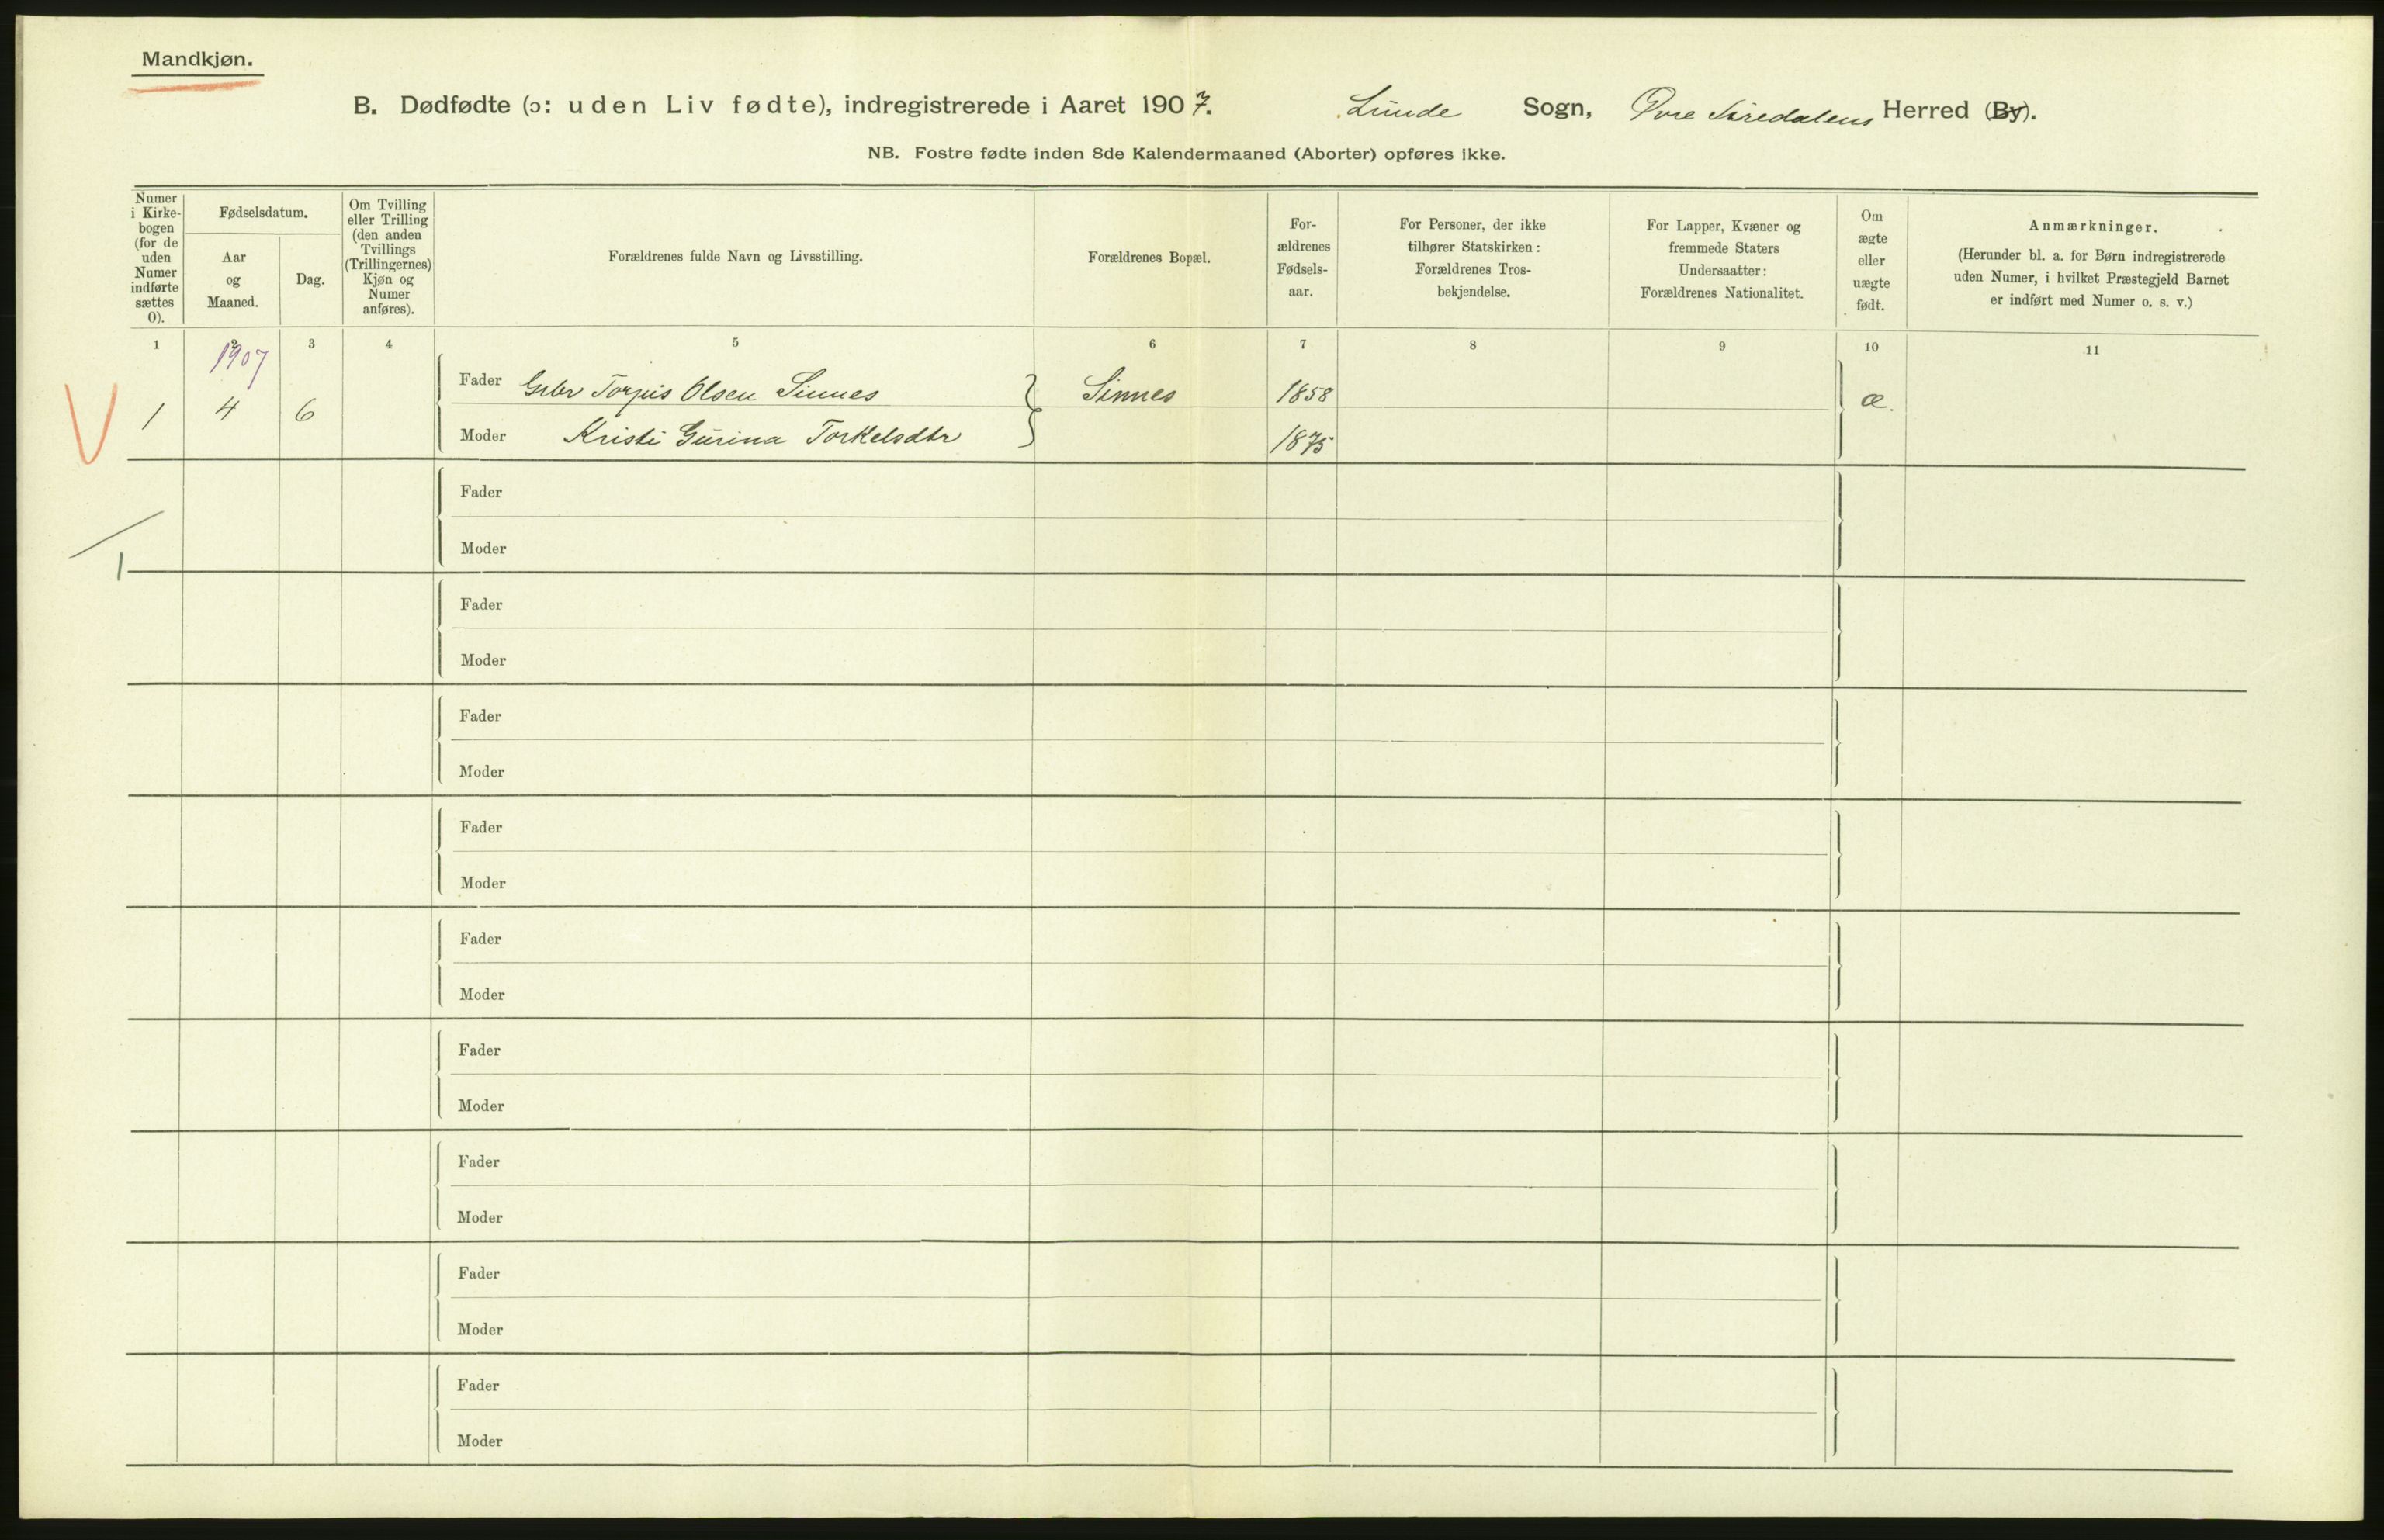 Mandkjøn.
B. Dødfødte (ɔ: uden Liv fødte), indregistrerede i Aaret 1907. Lunde Sogn, Øvre Siredalens Herred (By).
NB. Fostre fødte inden 8de Kalendermaaned (Aborter) opføres ikke.
Numer
i Kirke-
bogen
(for de
uden
Numer
indførte
sættes
0).
Fødselsdatum.
Aar
og
Maaned.
Dag.
Om Tvilling
eller Trilling
(den anden
Tvillings
(Trillingernes)
Kjøn og
Numer
anføres).
Forældrenes fulde Navn og Livsstilling.
Forældrenes Bopæl.
For-
ældrenes
Fødsels-
aar.
For Personer, der ikke
tilhører Statskirken:
Forældrenes Tros-
bekjendelse.
For Lapper, Kvæner og
fremmede Staters
Undersaatter:
Forældrenes Nationalitet.
Om
ægte
eller
uægte
født.
Anmærkninger.
(Herunder bl. a. for Børn indregistrerede
uden Numer, i hvilket Præstegjeld Barnet
er indført med Numer o. s. v.)
1 2 3 4 5 6 7 8 9 10 11
1907
V 1 4 6
Fader Gbr Torjus Olsen Sinnes Sinnes 1858 æ.
Moder Kristi Gurina Torkelsdtr 1875
Fader
Moder
1
Fader
Moder
Fader
Moder
Fader
Moder
Fader
Moder
Fader
Moder
Fader
Moder
Fader
Moder
Fader
Moder